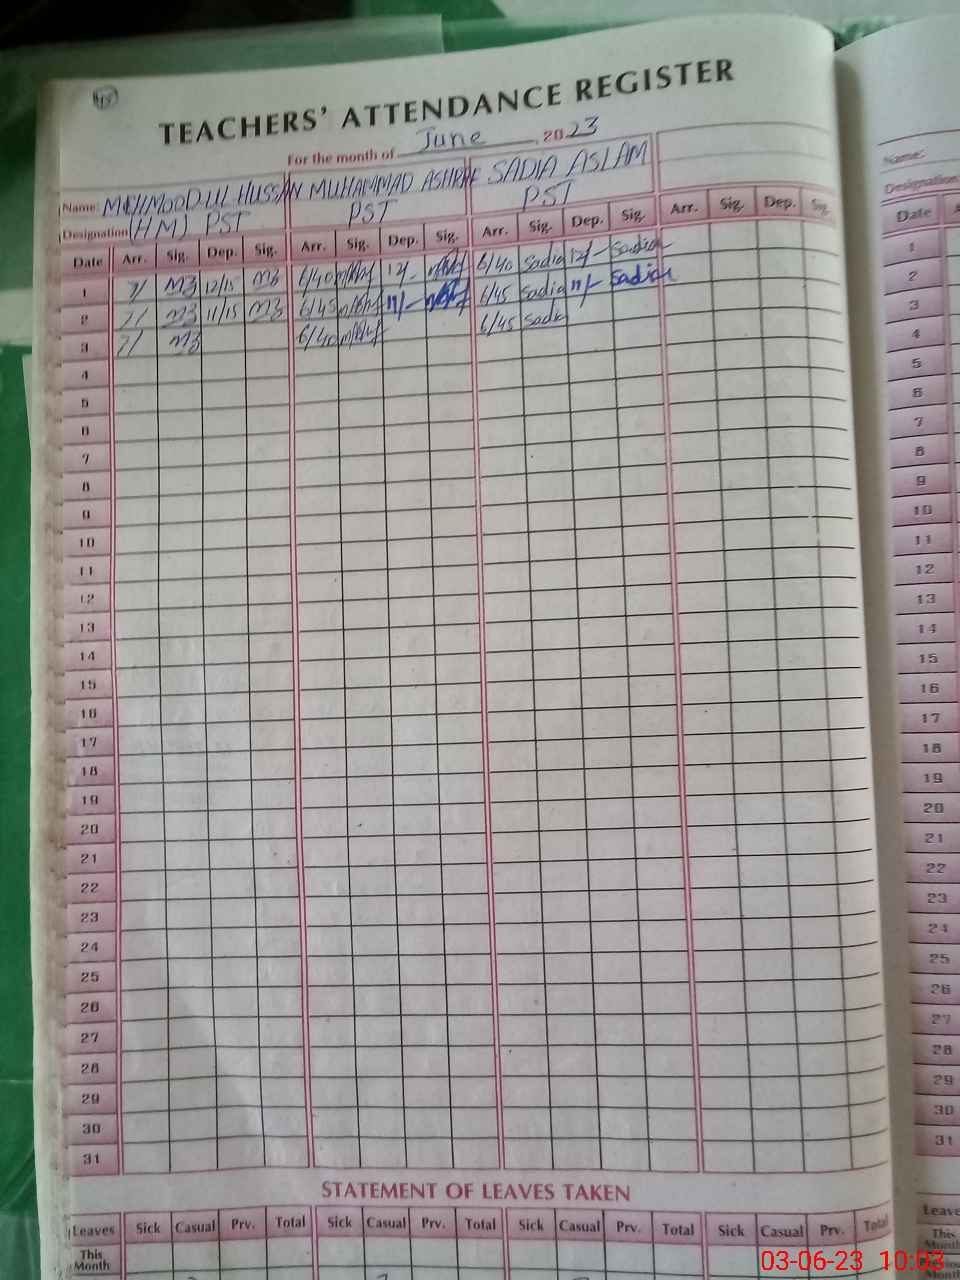 TEACHERS' ATTENDANCE REGISTER
For the month of June, 2023
Name: MEHMOOD UL HUSSAN MUHAMMAD ASHRAF SADIA ASLAM
Designation (HM) PST PST PST
Date Arr. Sig. Dep. Sig. Arr. Sig. Dep. Sig. Arr. Sig. Dep. Sig. Arr. Sig. Dep. Sig.
1 7/ 12/15 6/40 12/- 6/40 Sadia 12/- Sadia
2 7/ 11/15 6/45 11/- 6/45 Sadia 11/- Sadia
3 7/ 6/40 6/45 Sadia
4
5
6
7
8
9
10
11
12
13
14
15
16
17
18
19
20
21
22
23
24
25
26
27
28
29
30
31
STATEMENT OF LEAVES TAKEN
Leaves Sick Casual Prv. Total Sick Casual Prv. Total Sick Casual Prv. Total Sick Casual Prv. Total
This Month
Name:
Designation
Date
1
2
3
4
5
6
7
8
9
10
11
12
13
14
15
16
17
18
19
20
21
22
23
24
25
26
27
28
29
30
31
Leave
This
Month
03-06-23 10:03